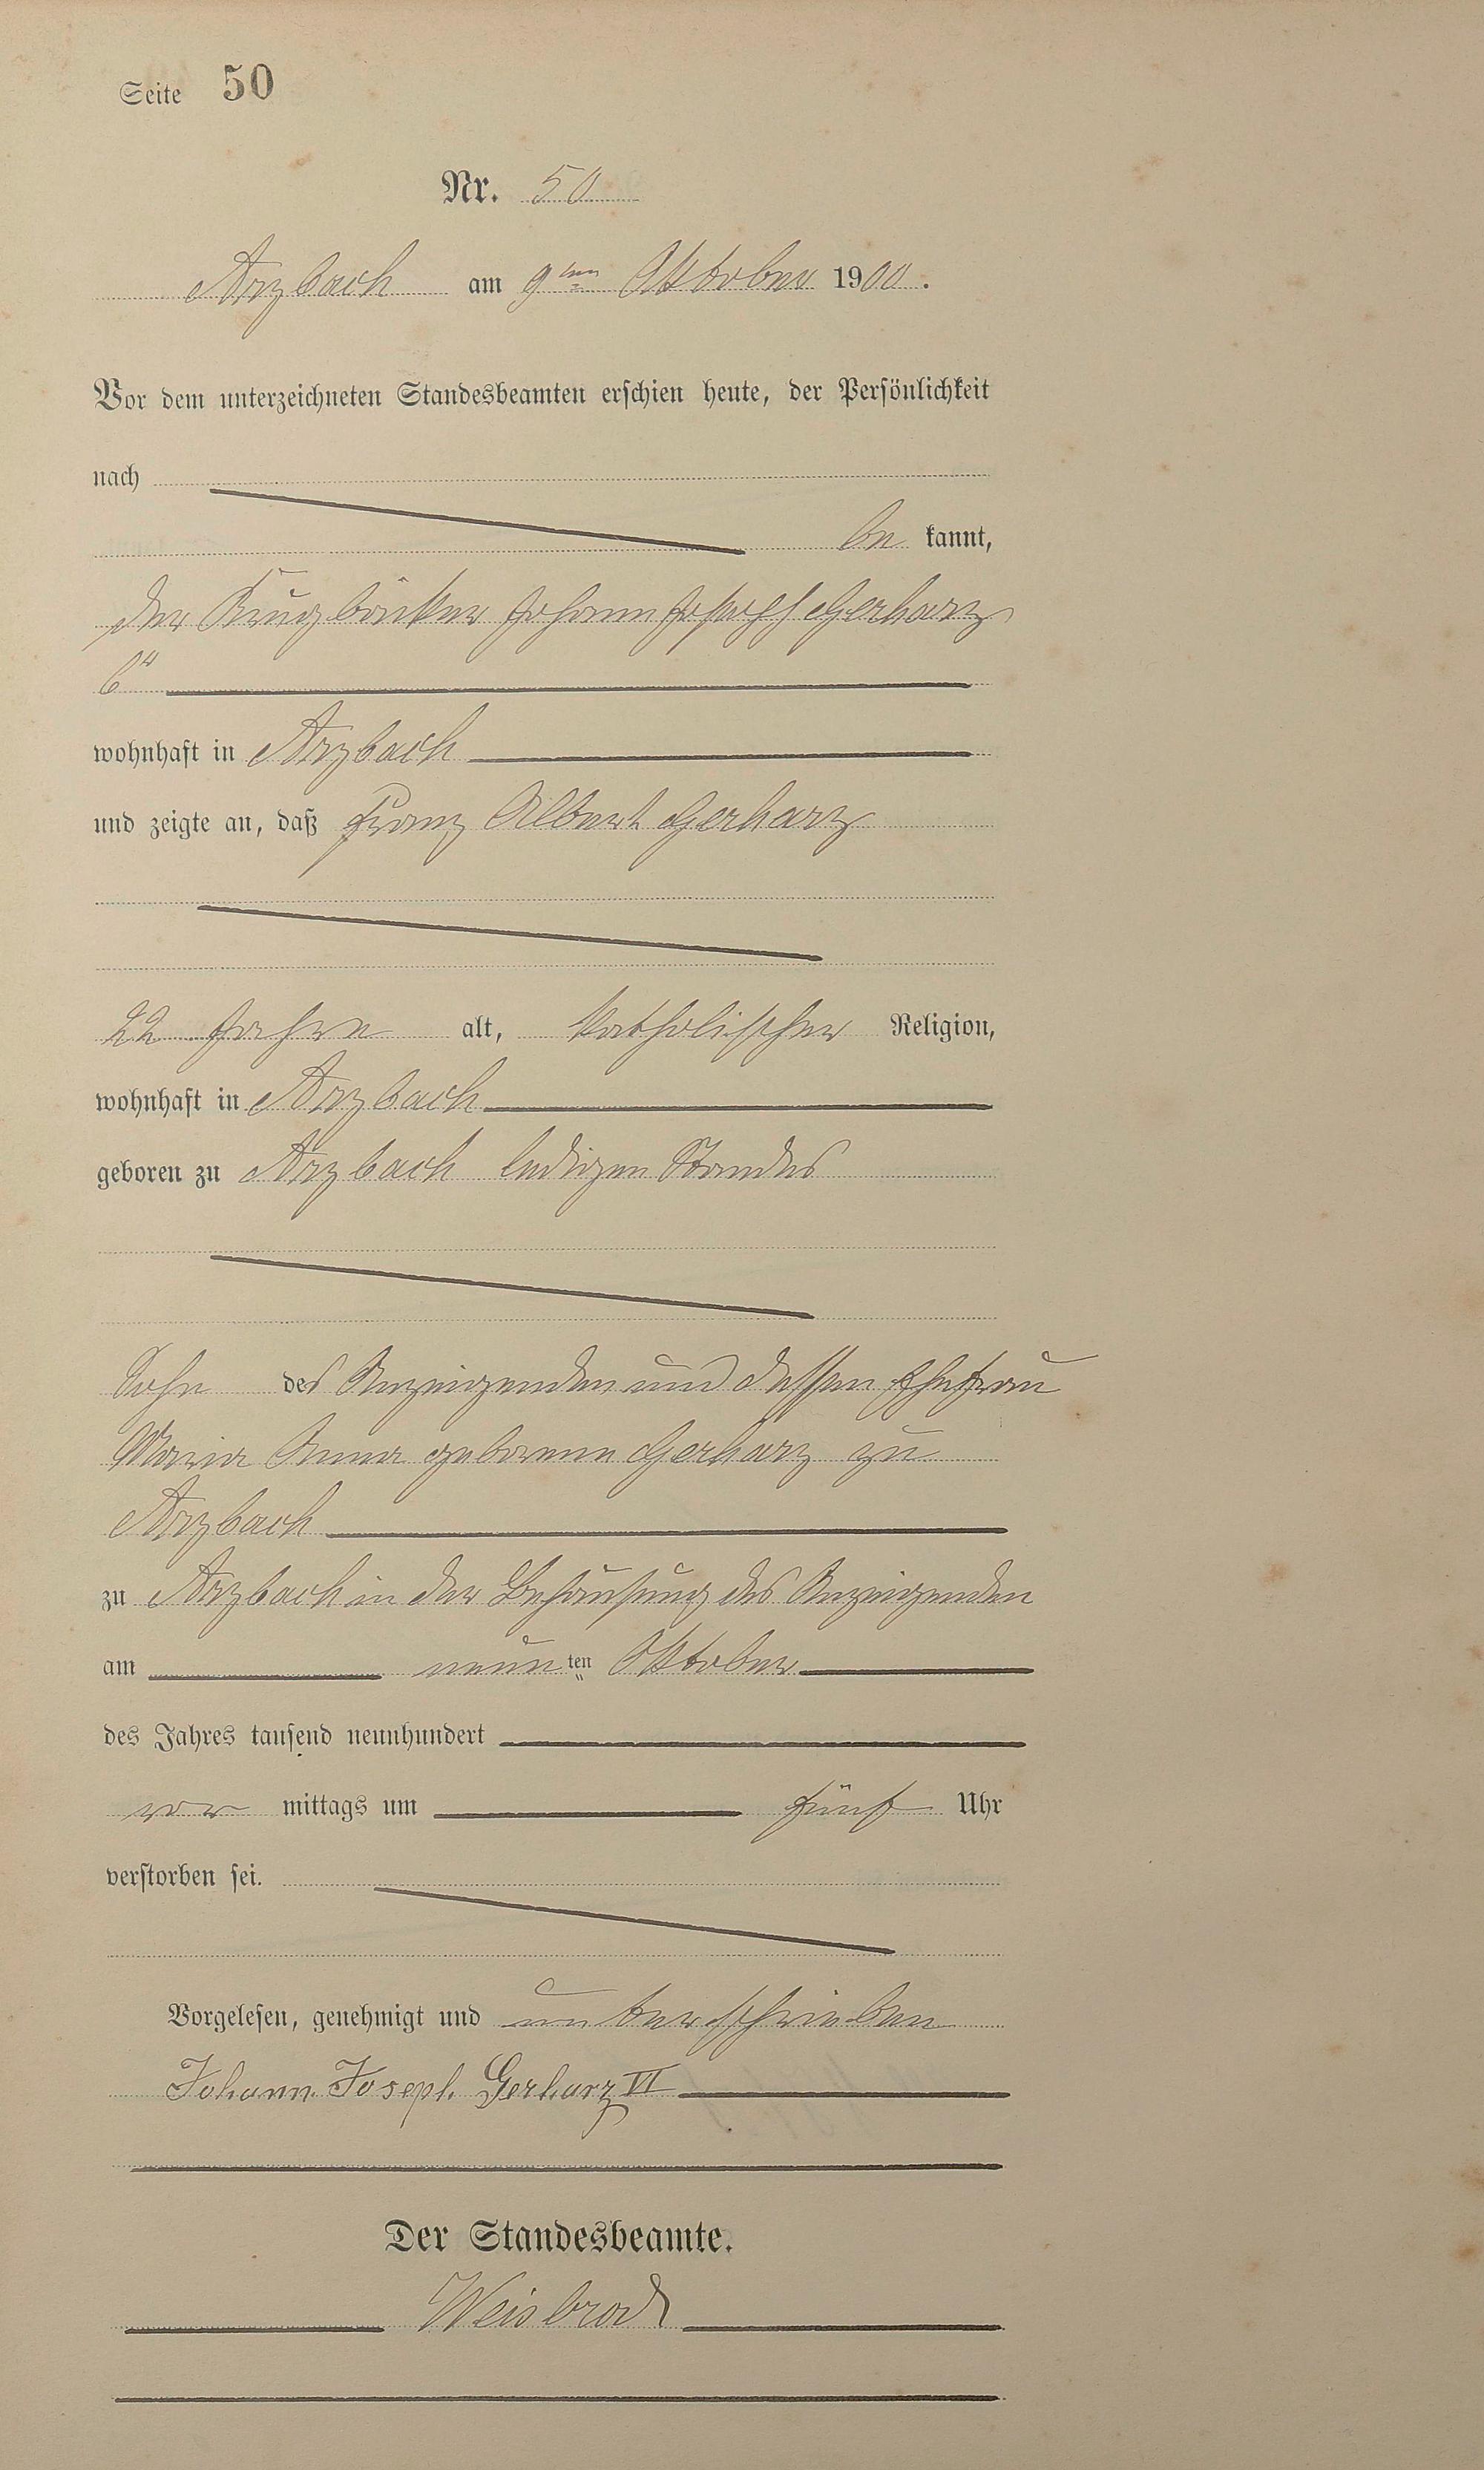 Seite 50
Nr. 50
Arzbach am 9ten Oktober 1900.
Vor dem unterzeichneten Standesbeamten erschien heute, der Persönlichkeit
nach
be kannt,
der Krugbäcker Johann Joseph Gerharz
6"
wohnhaft in Arzbach
und zeigte an, daß Franz Albert Gerharz
22 Jahre alt, katholischer Religion,
wohnhaft in Arzbach
geboren zu Arzbach ledigen Standes
Sohn des Anzeigenden und dessen Ehefrau
Maria Anna geborene Gerharz zu
Arzbach
zu Arzbach in der Behausung des Anzeigenden
am neunten Oktober
des Jahres tausend neunhundert
vor mittags um fünf Uhr
verstorben sei.
Vorgelesen, genehmigt und unterschrieben
Johann Joseph Gerharz VI
Der Standesbeamte.
Weisbrod